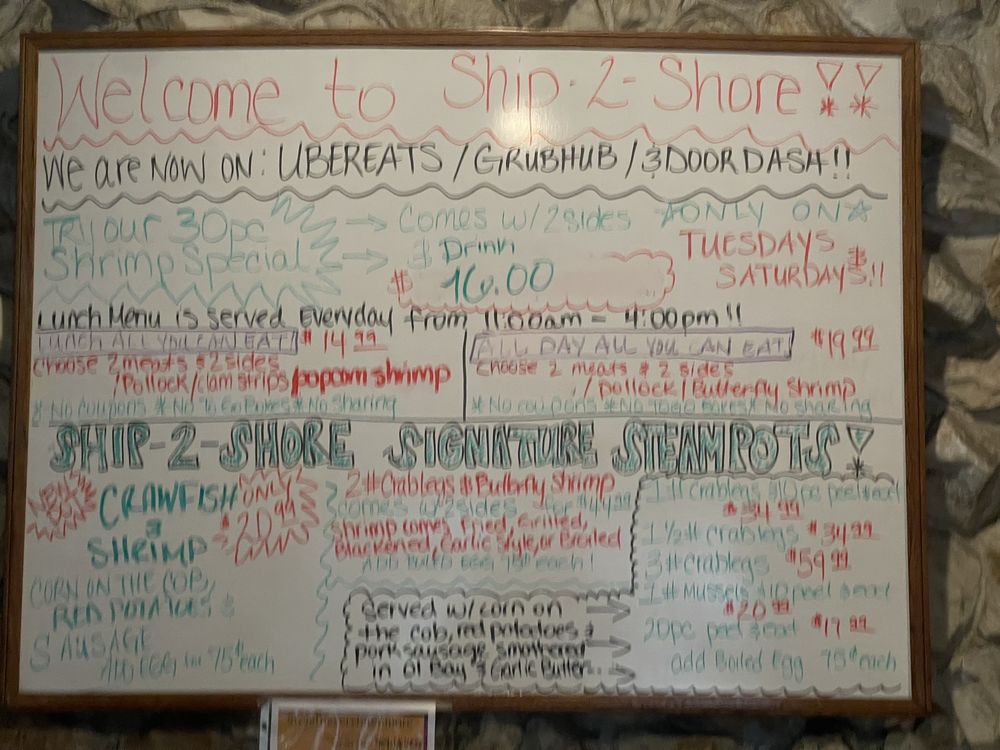 Welcome to Ship-2-Shore!!
We are NOW ON: UBEREATS / GRUBHUB / & DOORDASH!!
Try our 30pc
Shrimp Special
Comes w/2 sides
& Drink
$ 16.00
☆ONLY ON☆
TUESDAYS &
SATURDAYS!!
Lunch Menu is served Everyday from 11:00am - 4:00pm!!
Lunch ALL YOU CAN EAT! $14.99
Choose 2 meats & 2 sides
/Pollock/clam strips/popcorn shrimp
* No coupons * No To Go Boxes * No sharing
ALL DAY ALL YOU CAN EAT! $19.99
Choose 2 meats & 2 sides
/ pollock/Butterfly shrimp
* No coupons * No To Go Boxes * No sharing
SHIP-2-SHORE SIGNATURE STEAMPOTS!
CRAWFISH
&
SHRIMP
ONLY
$20.99
CORN ON THE COB,
RED POTATOES &
SAUSAGE
Add EGG for 75¢ each
2# Crablegs & Butterfly shrimp
comes w/2 sides for $44.99
shrimp comes Fried, Grilled,
Blackened, Garlic Style, or Broiled
ADD Boiled EGG 75¢ each!
Served w/corn on
the cob, red potatoes &
pork sausage smothered
in Ol Bay & Garlic Butter..
1# crablegs & 10pc peel & eat
$34.99
1 1/2# crablegs $34.99
3# crablegs $59.99
1# Mussels & 10 peel & eat
$20.99
20pc peel & eat $17.99
add Boiled Egg 75¢ each